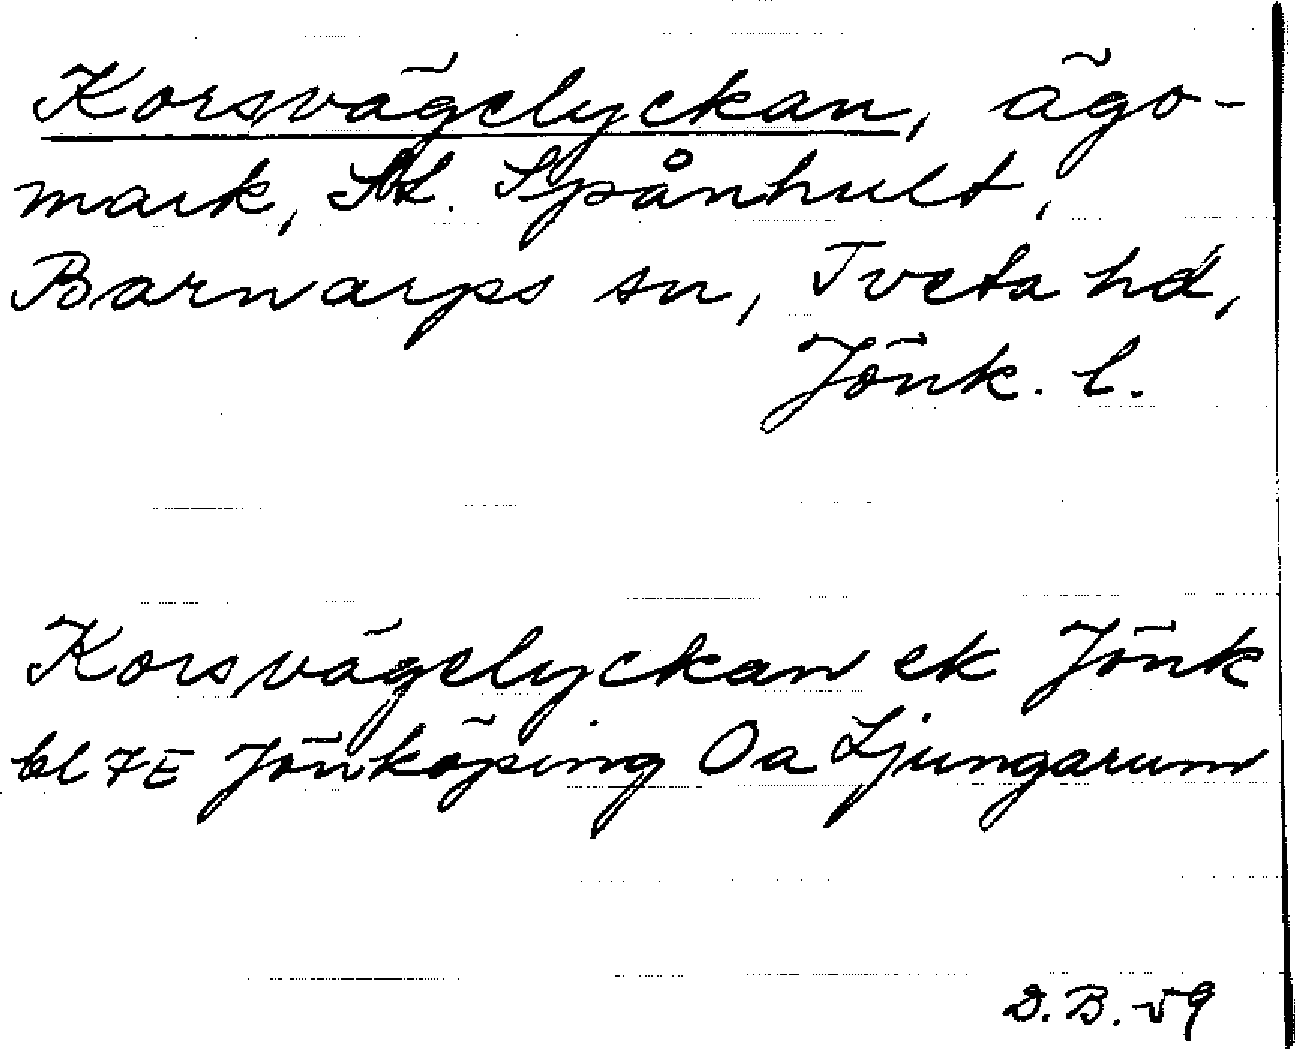 Korsvägelyckan, ägo-
mark, St. Spånhult,
Barnarps sn, Tveta hd,
Jönk. l.
Korsvägelyckan ek Jönk
bl 7E Jönköping Oa Ljungarum
D.B. -59